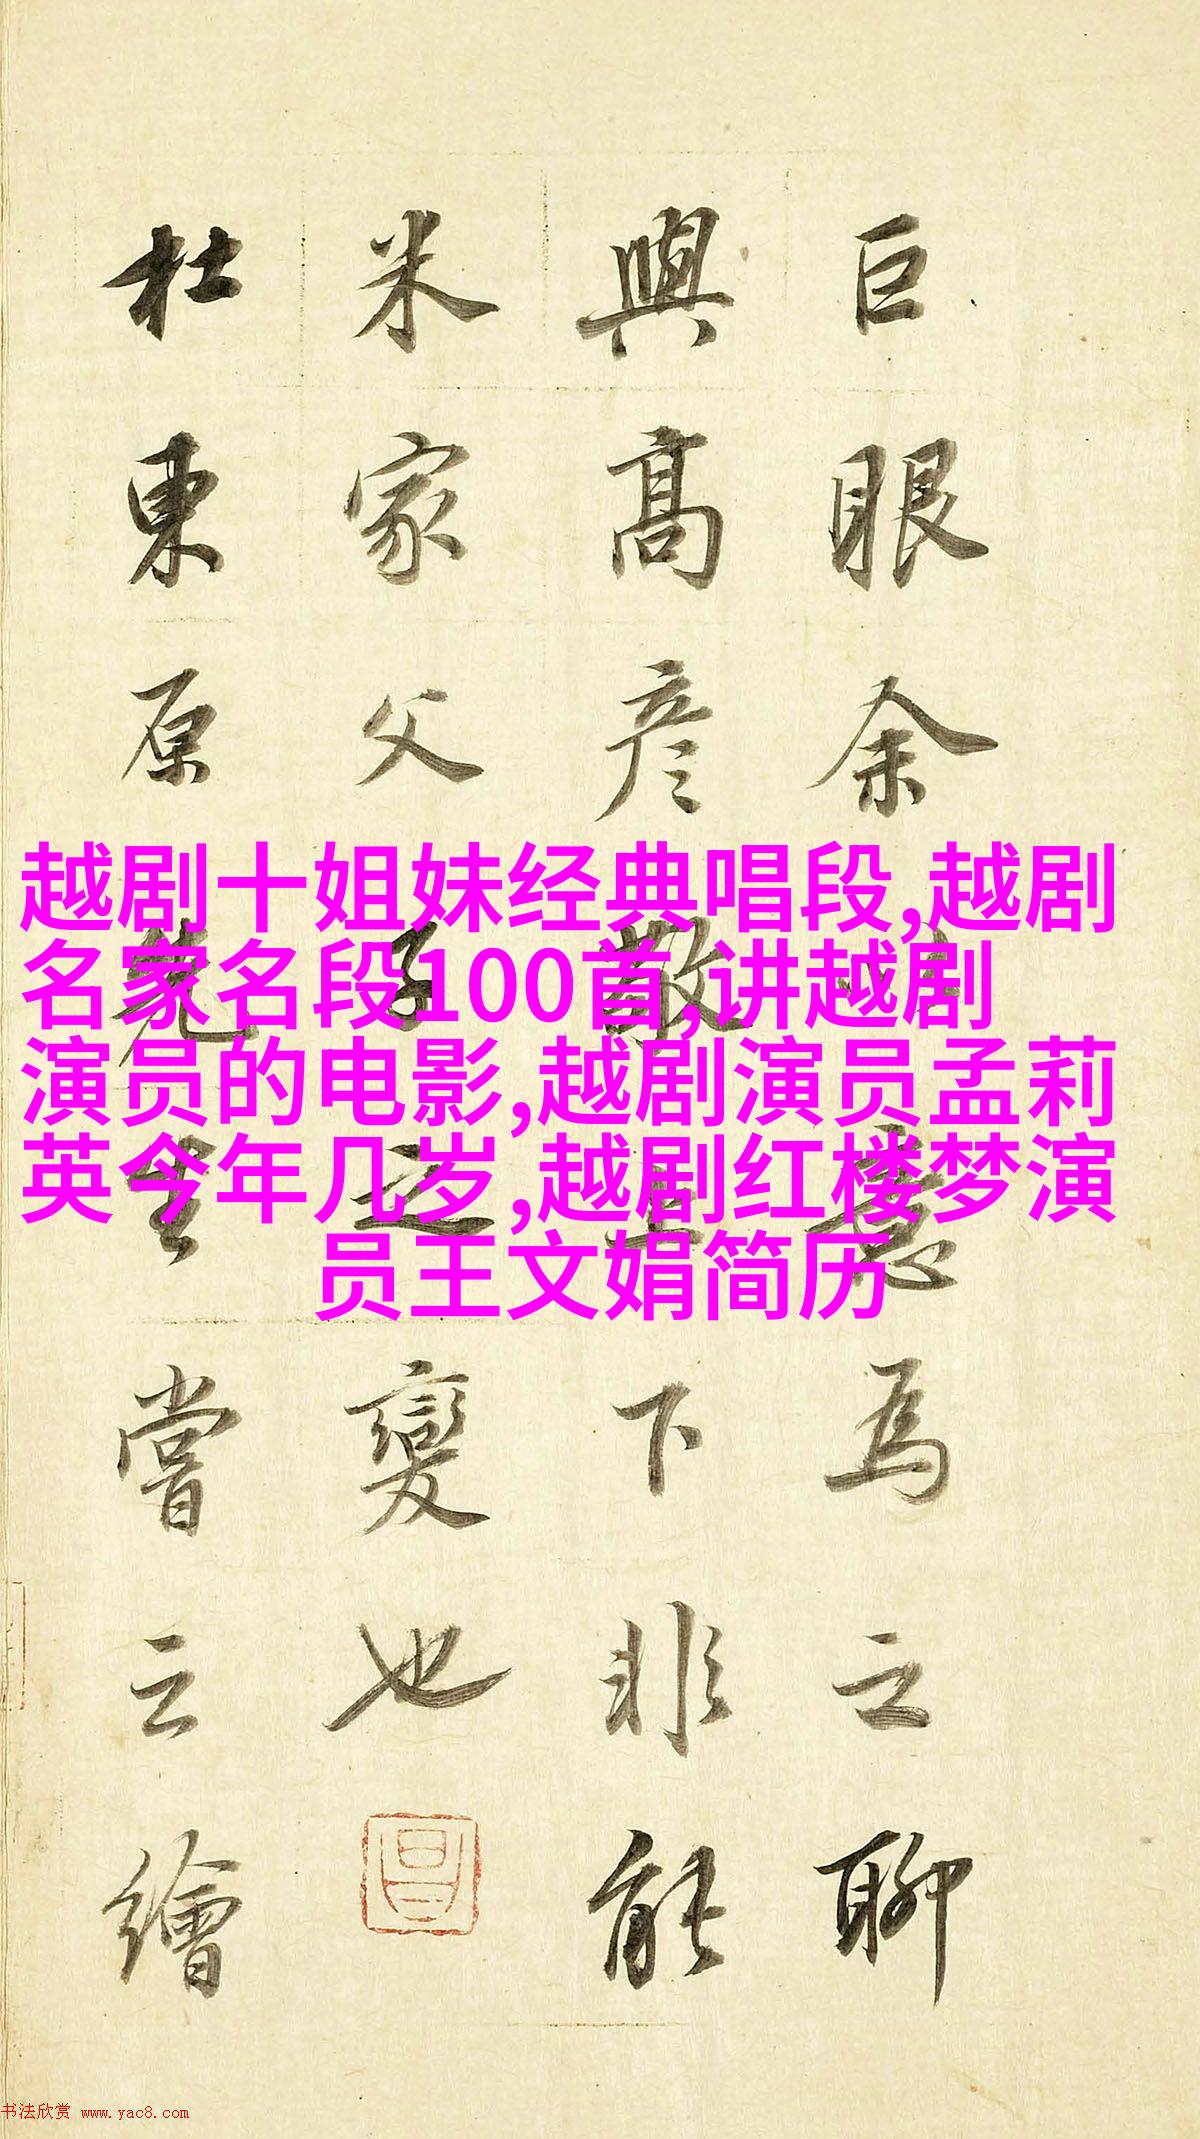 巨眼余意為之聊
與高彦敬上下非能
米家父子之變也
杜東原先生嘗云繪
越剧十姐妹经典唱段,越剧
名家名段100首,讲越剧
演员的电影,越剧演员孟莉
英今年几岁,越剧红楼梦演
员王文娟简历
书法欣赏 www.yac8.com